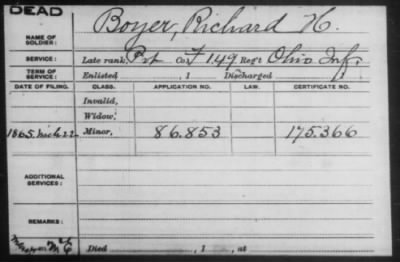 DEAD
NAME OF SOLDIER: Boyer, Richard H.
SERVICE: Late rank, Pvt Co. F 149, Reg't Ohio Inf.
TERM OF SERVICE: Enlisted , 1 Discharged , 1
DATE OF FILING. CLASS. APPLICATION NO. LAW. CERTIFICATE NO.
Invalid,
Widow,
1865, Mch 22 Minor, 86.853 175.366
ADDITIONAL SERVICES:
REMARKS:
Died , 1 , at